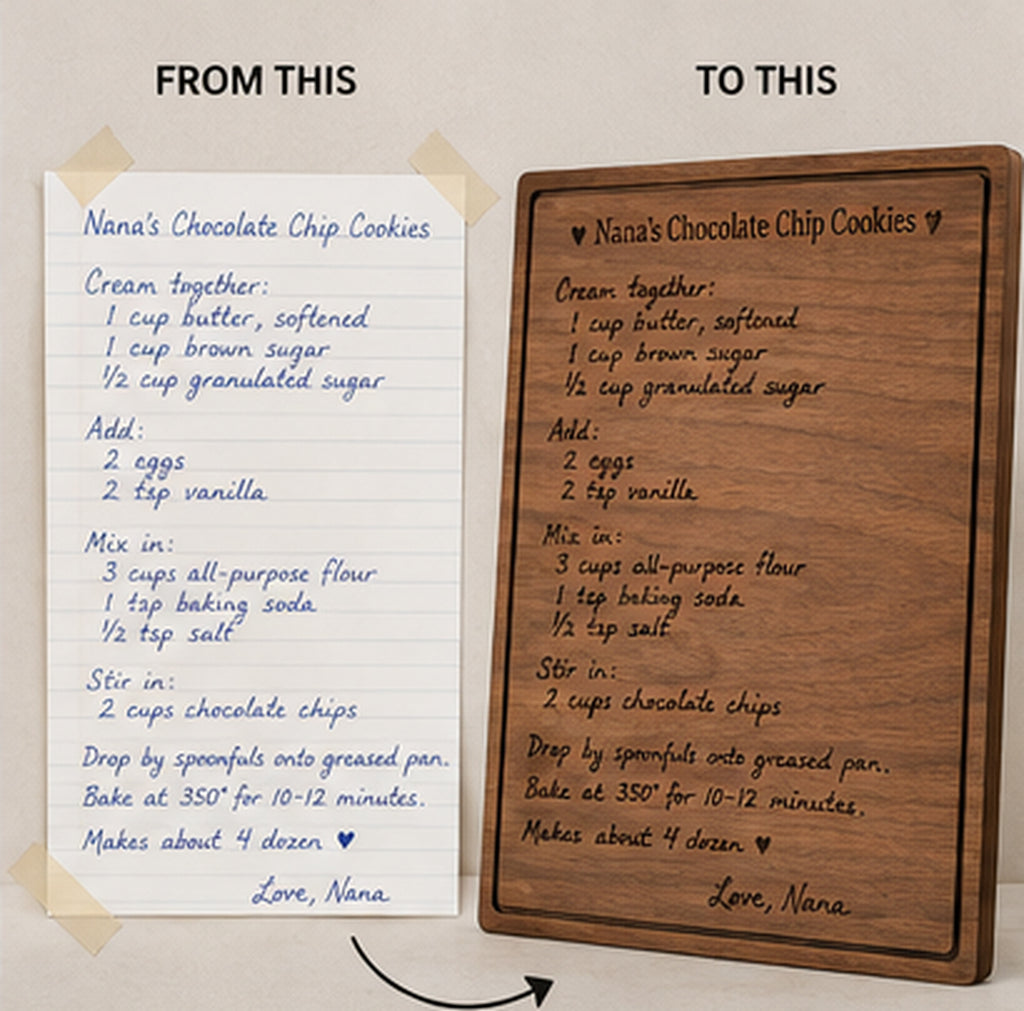 FROM THIS
Nana's Chocolate Chip Cookies
Cream together:
1 cup butter, softened
1 cup brown sugar
1/2 cup granulated sugar
Add:
2 eggs
2 tsp vanilla
Mix in:
3 cups all-purpose flour
1 tsp baking soda
1/2 tsp salt
Stir in:
2 cups chocolate chips
Drop by spoonfuls onto greased pan.
Bake at 350° for 10-12 minutes.
Makes about 4 dozen ♥
Love, Nana
TO THIS
♥ Nana's Chocolate Chip Cookies ♥
Cream together:
1 cup butter, softened
1 cup brown sugar
1/2 cup granulated sugar
Add:
2 eggs
2 tsp vanilla
Mix in:
3 cups all-purpose flour
1 tsp baking soda
1/2 tsp salt
Stir in:
2 cups chocolate chips
Drop by spoonfuls onto greased pan.
Bake at 350° for 10-12 minutes.
Makes about 4 dozen ♥
Love, Nana